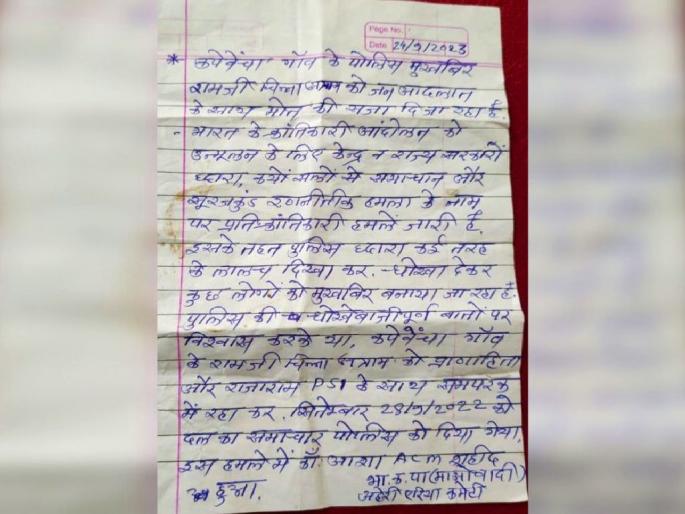 Page No.
Date 24/9/2023
* कपेवंचा गाँव के पोलिस मुखबिर
रामजी चिन्ना को जन आदलात
के साथ मोत की सजा दिजा रहा है.
- भारत के क्रांतिकारी आंदोलन को
उन्मुलन के लिए केन्द्र व राज्य सरकारों
ध्दारा, कयों सालों से समाधान और
सूरजकुंड रणनीतिक हमला के नाम
पर प्रतिक्रांतिकारी हमलें जारी है.
इसके तहत पुलिस ध्दारा कई तरह
के लालच दिखा कर. धोखा देकर
कुछ लोगों को मुखबिर बनाया जा रहा है.
पुलिस की धोखेबाजीपूर्ण बातों पर
विश्वास करके या, कपेवंचा गाँव
के रामजी चिन्ना आत्राम को प्राणहिता
और राजाराम PSI के साथ समपरक
में रहा कर. सितेम्बर 28/9/2022 को
दल का समाचार पोलिस को दिया गया.
इस हमले में कॉ. आशा ACM शहीद
हुआ.
भा.क.पा (माओवादी)
अहेरी एरिया कमेटी